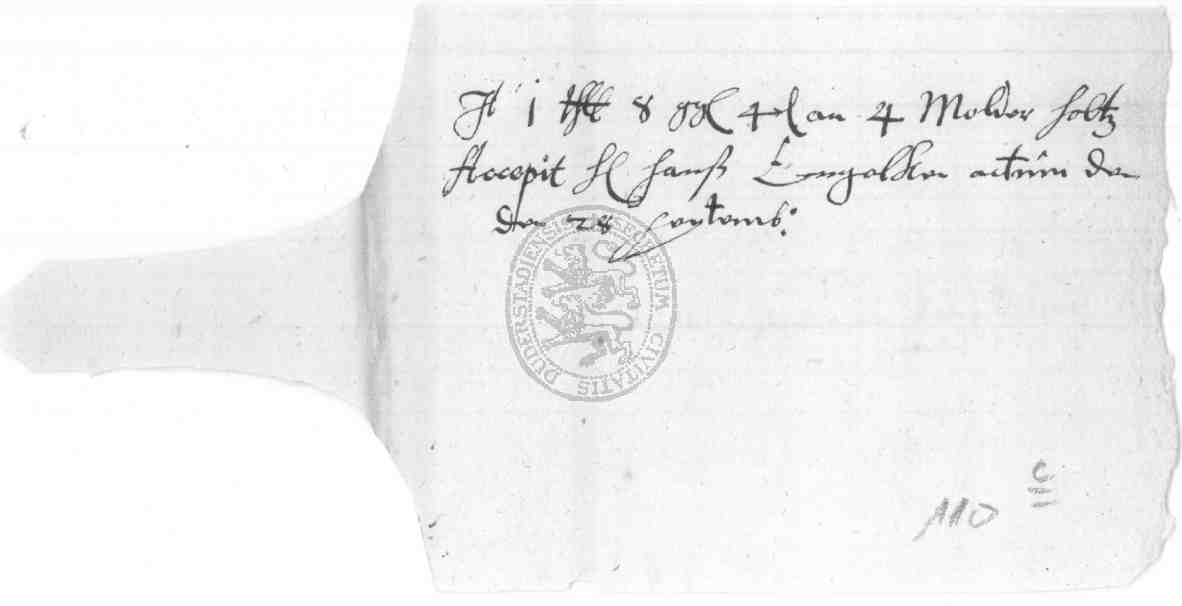 It 1 8 ggl 4 an 4 Molder holtz
Accepit hl hanß Engelken actum den
den 28 Septemb:
SECRETUM CIVITATIS DUDERSTADIENSIS
110 c